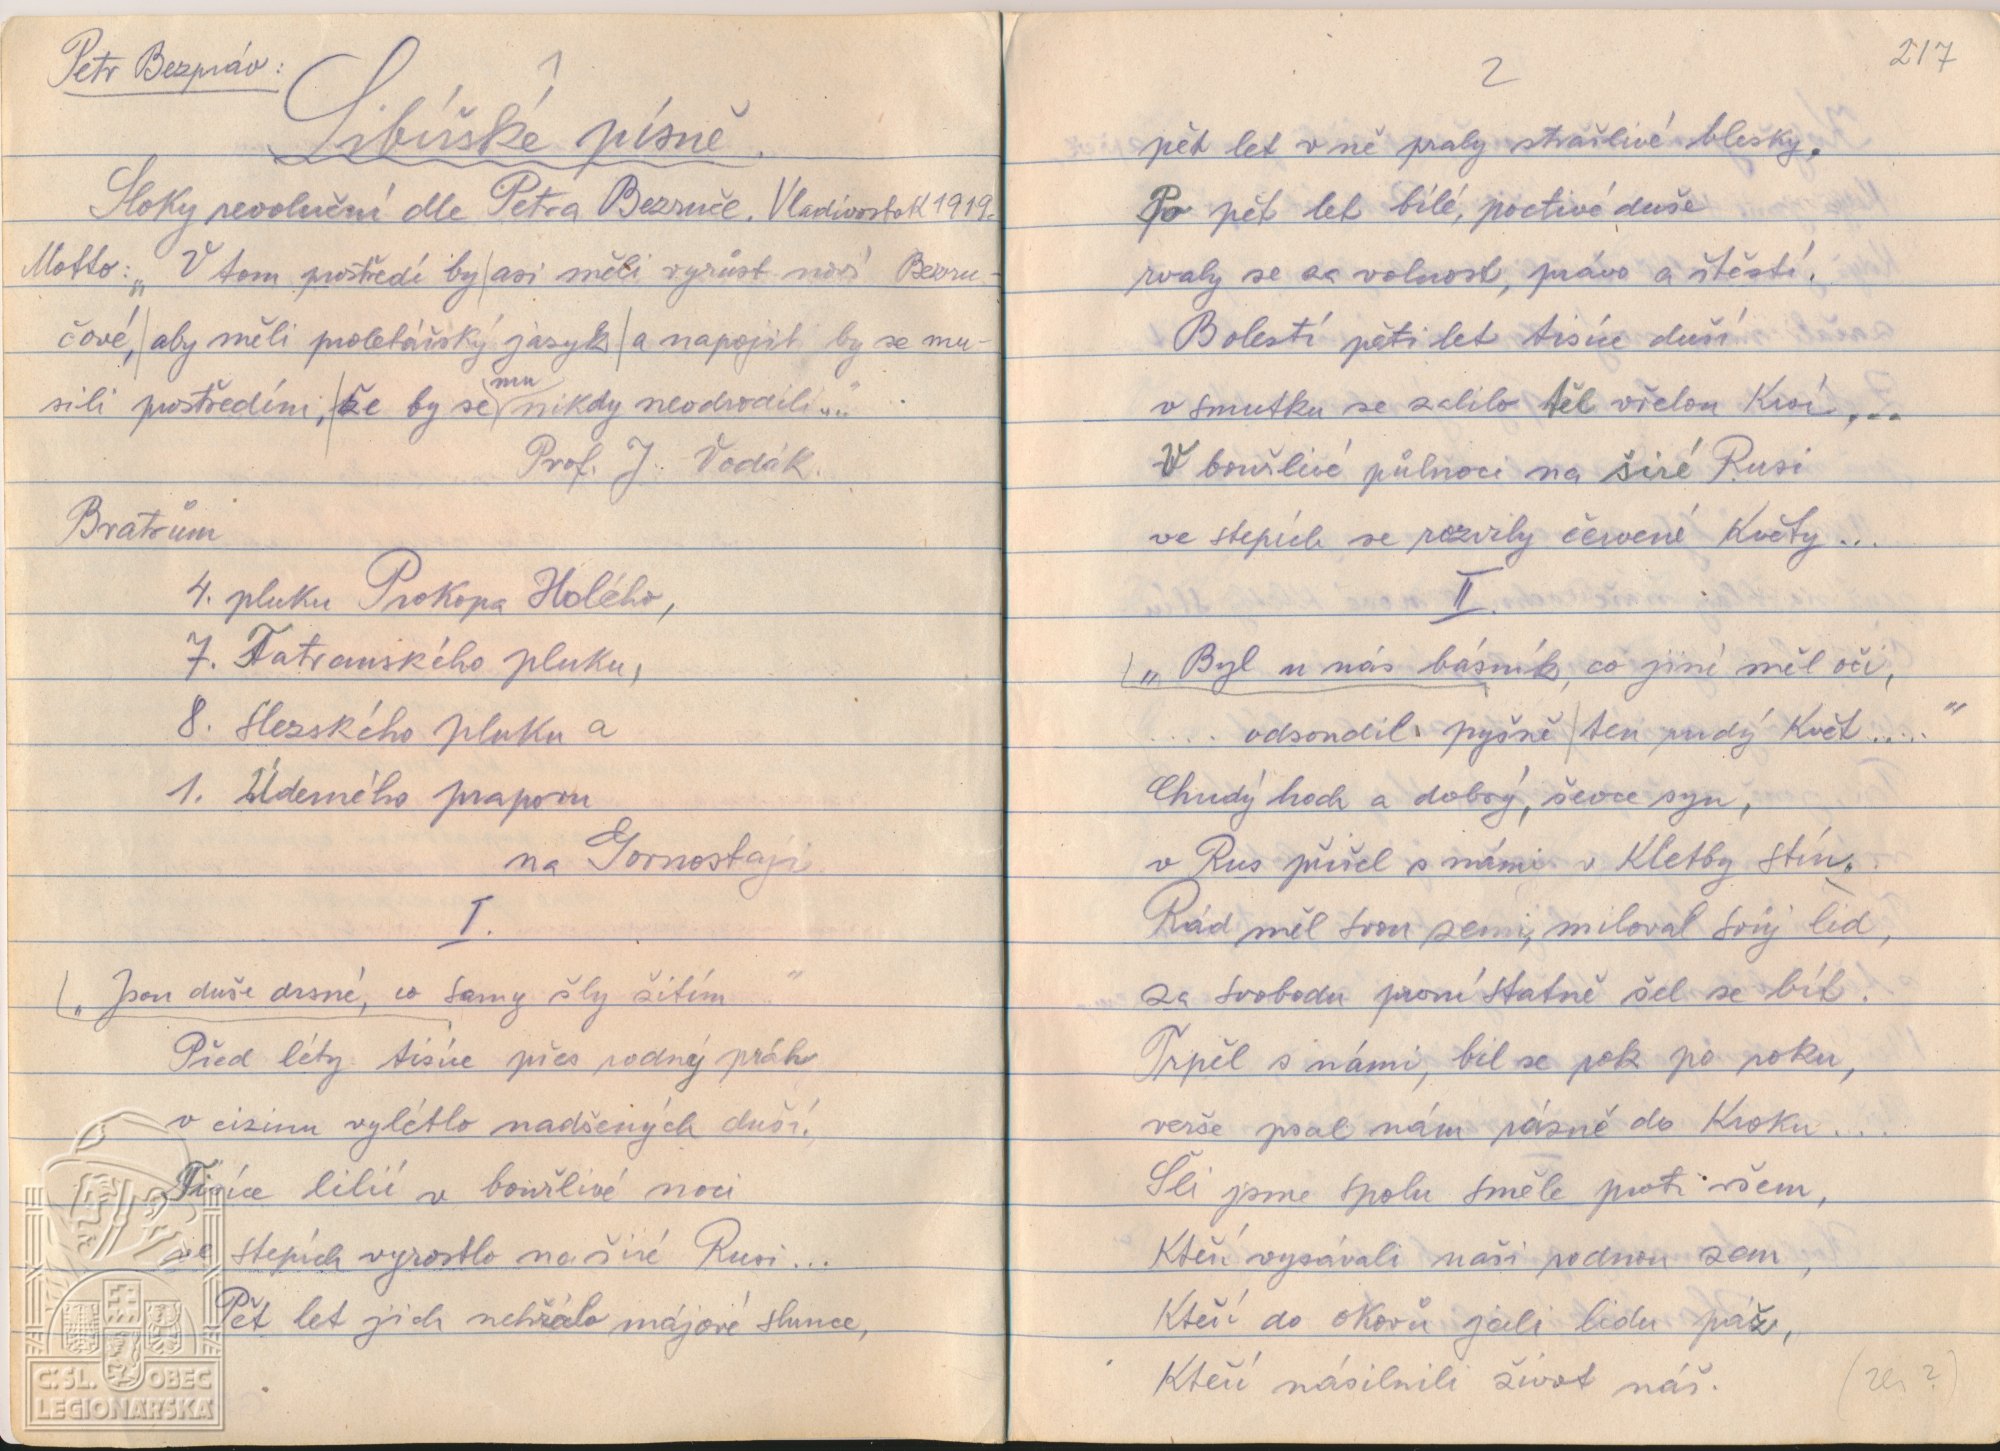 Petr Bezpráv:
1
Libíšské písně.
Sloky revoluční dle Petra Bezruče. Vladivostok 1919.
Motto: „V tom prostředí by asi měli vyrůst noví Bezru-
čové, aby měli proletářský jazyk a napojit by se mu-
sili prostředím, že by se mu nikdy neodrodili..."
Prof. J. Vodák.
Bratrům
4. pluku Prokopa Holého,
7. Tatranského pluku,
8. Slezského pluku a
1. Úderného praporu
na Gornostaji
I.
„Jsou duše drsné, co samy šly žitím"
Před léty tisíce přes rodný práh
v cizinu vylétlo nadšených duší,
Tisíce lilií v bouřlivé noci
ve stepích vyrostlo na širé Rusi...
Pět let jich nehřálo májové slunce,
C. SL. OBEC
LEGIONÁŘSKÁ
217
2
pět let v ně praly strašlivé blesky.
Po pět let bílé, poctivé duše
rvaly se za volnost, právo a štěstí.
Bolestí pěti let tisíce duší
v smutku se zalilo těl vřelou krví...
V bouřlivé půlnoci na širé Rusi
ve stepích se rozvily červené květy...
II.
„Byl u nás básník, co jiní měl oči,
.... odsoudil pyšně ten rudý květ....."
Chudý hoch a dobrý, ševce syn,
v Rus přišel s námi v kletby stín.
Rád měl svou zemi, miloval svůj lid,
za svobodu první statně šel se bít.
Trpěl s námi, bil se rok po roku,
verše psal nám rázně do kroku....
Šli jsme spolu směle proti všem,
kteří vysávali naši rodnou zem,
kteří do okovů jali lidu páž,
kteří násilnili život náš.